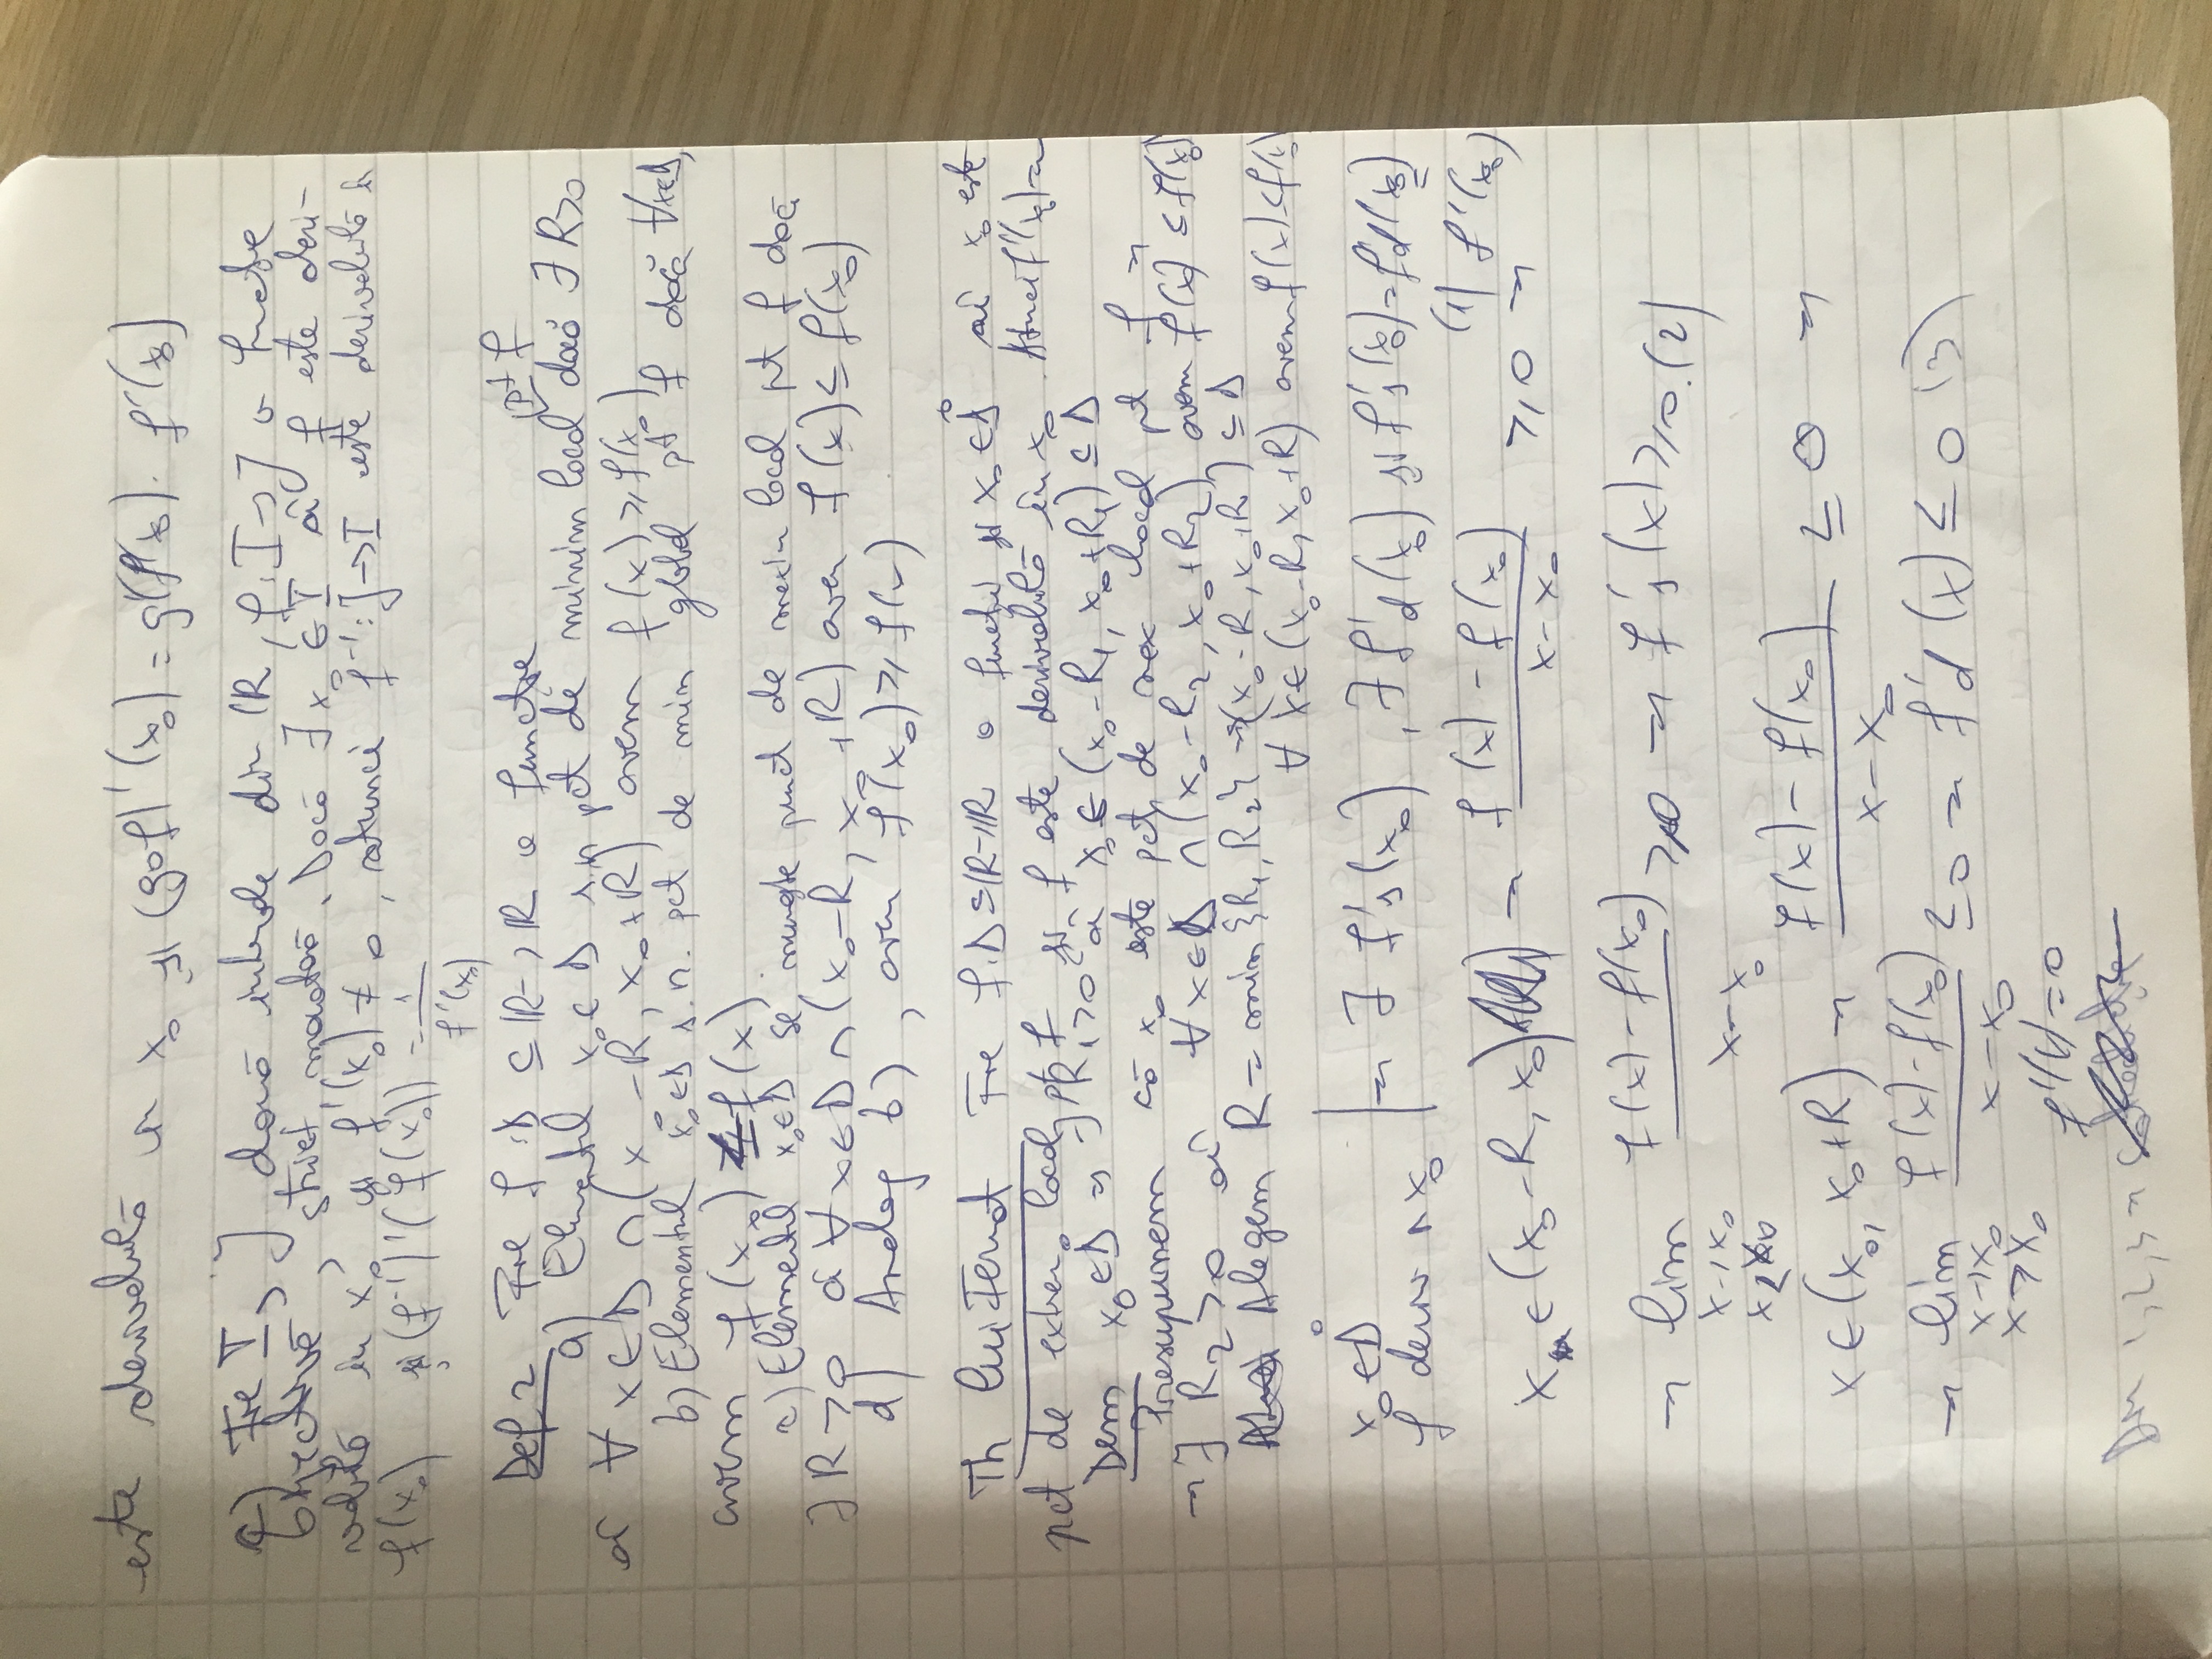 este derivabilă în x₀ și (g∘f)'(x₀) = g'(f(x₀)). f'(x₀)
c) Fie I, J două intervale din ℝ, f: I→J o funcție
bijectivă, strict monotonă. Dacă ∃ x₀ ∈ I aî f este deri-
vabilă în x₀ și f'(x₀) ≠ 0, atunci f⁻¹: J→I este derivabilă în
f(x₀) și (f⁻¹)'(f(x₀)) = 1/f'(x₀)
Def 2 Fie f: D ⊆ ℝ→ℝ o funcție
a) Elementul x₀ ∈ D s.n pct de minim local pt f dacă ∃ R>0
aî ∀ x∈D ∩ (x₀-R, x₀+R) avem f(x) ≥ f(x₀)
b) Elementul x₀∈D s.n. pct de min global pt f dacă ∀x∈D,
avem f(x₀) ≤ f(x)
c) Elementul x₀∈D se numește punct de maxim local pt f dacă
∃ R>0 aî ∀x∈D ∩ (x₀-R, x₀+R) avem f(x) ≤ f(x₀)
d) Analog b), avem f(x₀) ≥ f(x)
Th lui Fermat Fie f: D⊆ℝ→ℝ o funcție și x₀ ∈ D̊ aî x₀ este
pct de extrem local pt f și f este derivabilă în x₀. Atunci f'(x₀)=0
Dem x₀∈D̊ ⇒ ∃ R₁>0 aî x₀ ∈ (x₀-R₁, x₀+R₁) ⊆ D
Presupunem că x₀ este pct de max local pt f ⇒
⇒ ∃ R₂>0 aî ∀x∈D ∩ (x₀-R₂, x₀+R₂) avem f(x) ≤ f(x₀)
Alegem R = min {R₁, R₂} ⇒ (x₀-R, x₀+R) ⊆ D
∀ x∈(x₀-R, x₀+R) avem f(x) ≤ f(x₀)
x₀∈D̊
f deriv în x₀ | ⇒ ∃ f's(x₀), ∃ f'd(x₀) și f's(x₀) = f'd(x₀) =
(1) f'(x₀)
x ∈ (x₀-R, x₀) ⇒ (f(x) - f(x₀))/(x-x₀) ≥ 0 ⇒
⇒ lim x→x₀ x<x₀ (f(x) - f(x₀))/(x-x₀) ≥ 0 ⇒ f's(x) ≥ 0. (2)
x∈(x₀, x₀+R) ⇒ (f(x) - f(x₀))/(x-x₀) ≤ 0 ⇒
⇒ lim x→x₀ x>x₀ (f(x) - f(x₀))/(x-x₀) ≤ 0 ⇒ f'd(x) ≤ 0 (3)
f'(x)=0
Din 1, 2, 3 ⇒